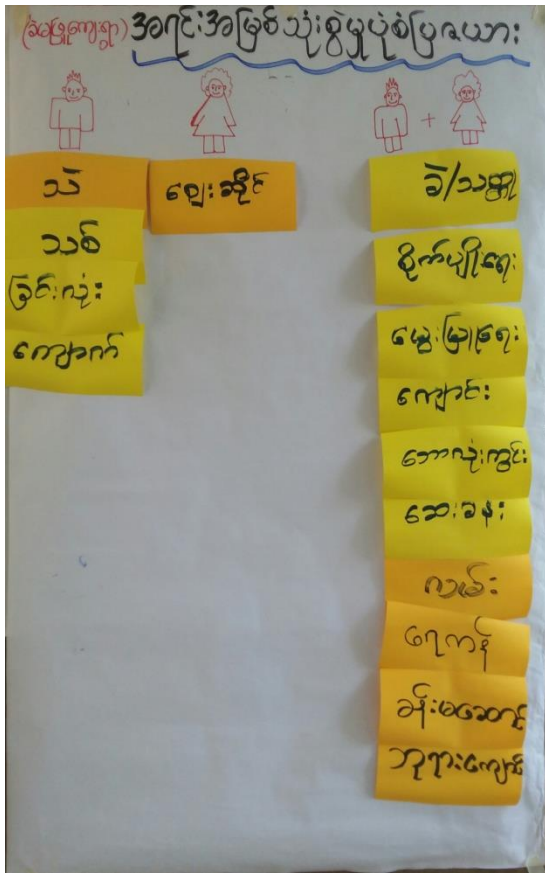 (ခဲမဖြူကျေးရွာ) အရင်းအမြစ်သုံးစွဲမှုပုံစံပြဇယား
+
သဲ
သစ်
ခြင်းလုံး
ကျောက်
ဈေးဆိုင်
ခဲ/သတ္တု
စိုက်ပျိုးရေး
မွေးမြူရေး
ကျောင်း
ဘောလုံးကွင်း
ဆေးခန်း
လမ်း
ရေကန်
ခန်းမဆောင်
ဘုရားကျောင်း